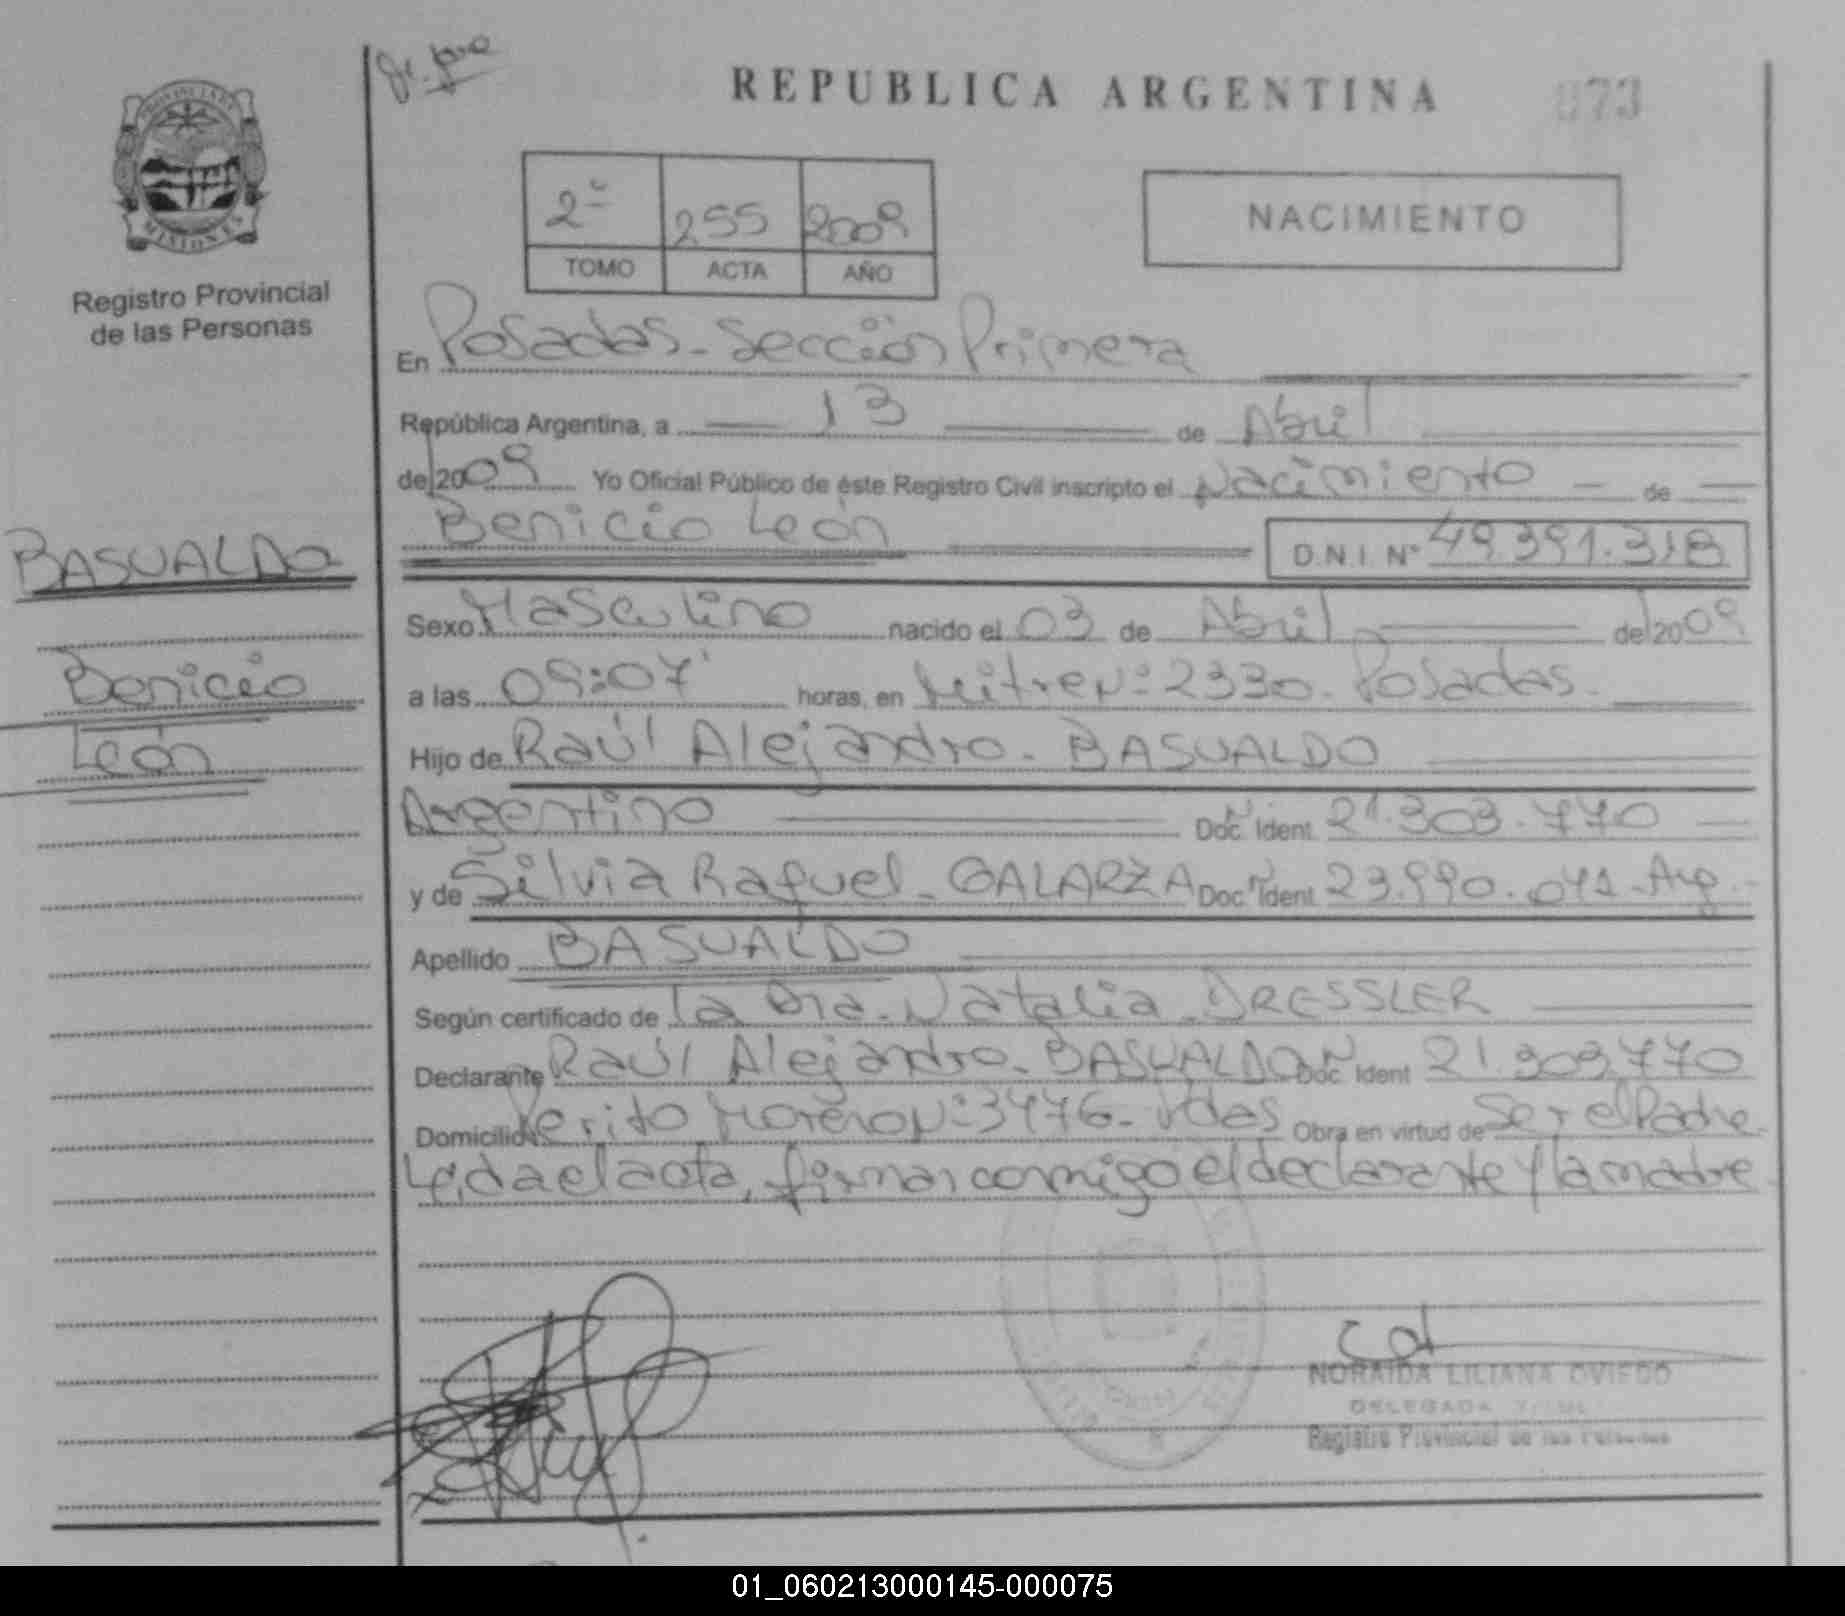 REPUBLICA ARGENTINA
073
PROVINCIA DE
MISIONES
Registro Provincial
de las Personas
2º 255 2009
TOMO ACTA AÑO
NACIMIENTO
En Posadas - Sección Primera
República Argentina, a 13 de Abril
de 2009 Yo Oficial Público de éste Registro Civil inscripto el Nacimiento de
Benicio León D.N.I. Nº 49.391.318
BASUALDO
Benicio
León
Sexo Masculino nacido el 03 de Abril de 2009
a las 09:07' horas, en Mitre Nº 2330. Posadas.
Hijo de Raúl Alejandro - BASUALDO
Argentino Doc. Ident 21.303.770
y de Silvia Raquel - GALARZA Doc. Ident 23.990.041 - Arg.
Apellido BASUALDO
Según certificado de la Dra. Natalia - DRESSLER
Declarante Raúl Alejandro - BASUALDO Doc. Ident 21.303.770
Domicilio Perito Moreno Nº 3476 - Pdas Obra en virtud de Ser el Padre.
Leida el acta, firman conmigo el declarante y la madre.
NORAIDA LILIANA OVIEDO
DELEGADA
Registro Provincial de las Personas
01_060213000145-000075